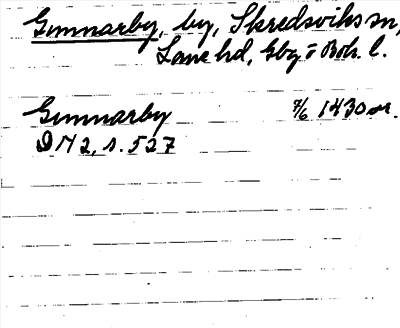 Gunnarby, by, Skredsviks sn,
Lane hd, Gbg o Boh. l.
Gunnarby 7/6 1430 or.
DN 2, s. 527